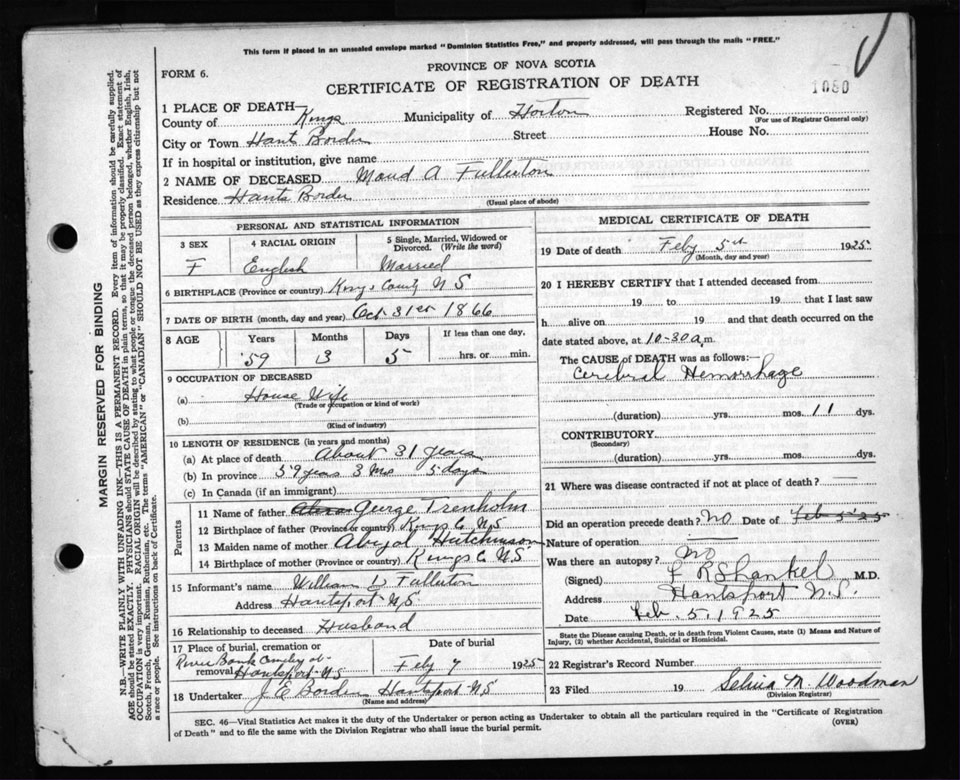 This form if placed in an unsealed envelope marked "Dominion Statistics Free," and properly addressed, will pass through the mails "FREE."
PROVINCE OF NOVA SCOTIA
FORM 6.
CERTIFICATE OF REGISTRATION OF DEATH
1080
1 PLACE OF DEATH—
County of Kings Municipality of Horton Registered No.
(For use of Registrar General only)
City or Town Hants Border Street House No.
If in hospital or institution, give name
2 NAME OF DECEASED Maud A Fullerton
Residence Hants Border
(Usual place of abode)
PERSONAL AND STATISTICAL INFORMATION
3 SEX 4 RACIAL ORIGIN 5 Single, Married, Widowed or Divorced. (Write the word)
F English Married
6 BIRTHPLACE (Province or country) Kings County N S
7 DATE OF BIRTH (month, day and year) Oct 31st 1866
8 AGE Years Months Days If less than one day,
59 3 5 hrs. or min.
9 OCCUPATION OF DECEASED
(a) House Wife
(Trade or occupation or kind of work)
(b)
(Kind of industry)
10 LENGTH OF RESIDENCE (in years and months)
(a) At place of death About 31 years
(b) In province 59 years 3 Mo 5 days
(c) In Canada (if an immigrant)
Parents
11 Name of father George Trenholm
12 Birthplace of father (Province or country) Kings Co N S
13 Maiden name of mother Abigal Hutchinson
14 Birthplace of mother (Province or country) Kings Co N.S.
15 Informant's name William L Fullerton
Address Hantsport N S
16 Relationship to deceased Husband
17 Place of burial, cremation or removal Date of burial
River Bank Cemetery at Hantsport N S Feby 7 1925
18 Undertaker J E Borden Hantsport N S
(Name and address)
MEDICAL CERTIFICATE OF DEATH
19 Date of death Feby 5th 1925
(Month, day and year)
20 I HEREBY CERTIFY that I attended deceased from
19 to 19 that I last saw
h alive on 19 and that death occurred on the
date stated above, at 10-30 a.m.
The CAUSE OF DEATH was as follows:—
Cerebral Hemorrhage
(duration) yrs. mos. 11 dys.
CONTRIBUTORY
(Secondary)
(duration) yrs. mos. dys.
21 Where was disease contracted if not at place of death?
Did an operation precede death? No Date of Feb 5-25
Nature of operation
Was there an autopsy? No
(Signed) F R Shankel M.D.
Address Hantsport N.S.
Date Feb. 5. 1925
State the Disease causing Death, or in death from Violent Causes, state (1) Means and Nature of Injury, (2) whether Accidental, Suicidal or Homicidal.
22 Registrar's Record Number
23 Filed 19 Selina M. Woodman
(Division Registrar)
SEC. 46—Vital Statistics Act makes it the duty of the Undertaker or person acting as Undertaker to obtain all the particulars required in the "Certificate of Registration
of Death" and to file the same with the Division Registrar who shall issue the burial permit.
(OVER)
MARGIN RESERVED FOR BINDING
N.B.—WRITE PLAINLY WITH UNFADING INK—THIS IS A PERMANENT RECORD. Every item of information should be carefully supplied.
AGE should be stated EXACTLY. PHYSICIANS should STATE CAUSE OF DEATH in plain terms, so that it may be properly classified. Exact statement of
OCCUPATION is very important. RACIAL ORIGIN will be described by stating to what people or tongue the deceased person belonged, whether English, Irish,
Scotch, French, German, Russian, Ruthenian, etc. The terms "AMERICAN" or "CANADIAN" SHOULD NOT BE USED as they express citizenship but not
a race or people. See instructions on back of Certificate.